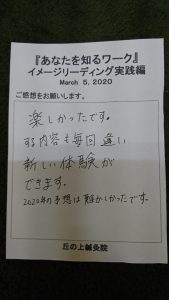 『あなたを知るワーク』
イメージリーディング実践編
March 5, 2020
ご感想をお願いします。
楽しかったです。
する内容も毎回違い
新しい体験が
できます。
2020年の予想は難かしかったです。
丘の上鍼灸院